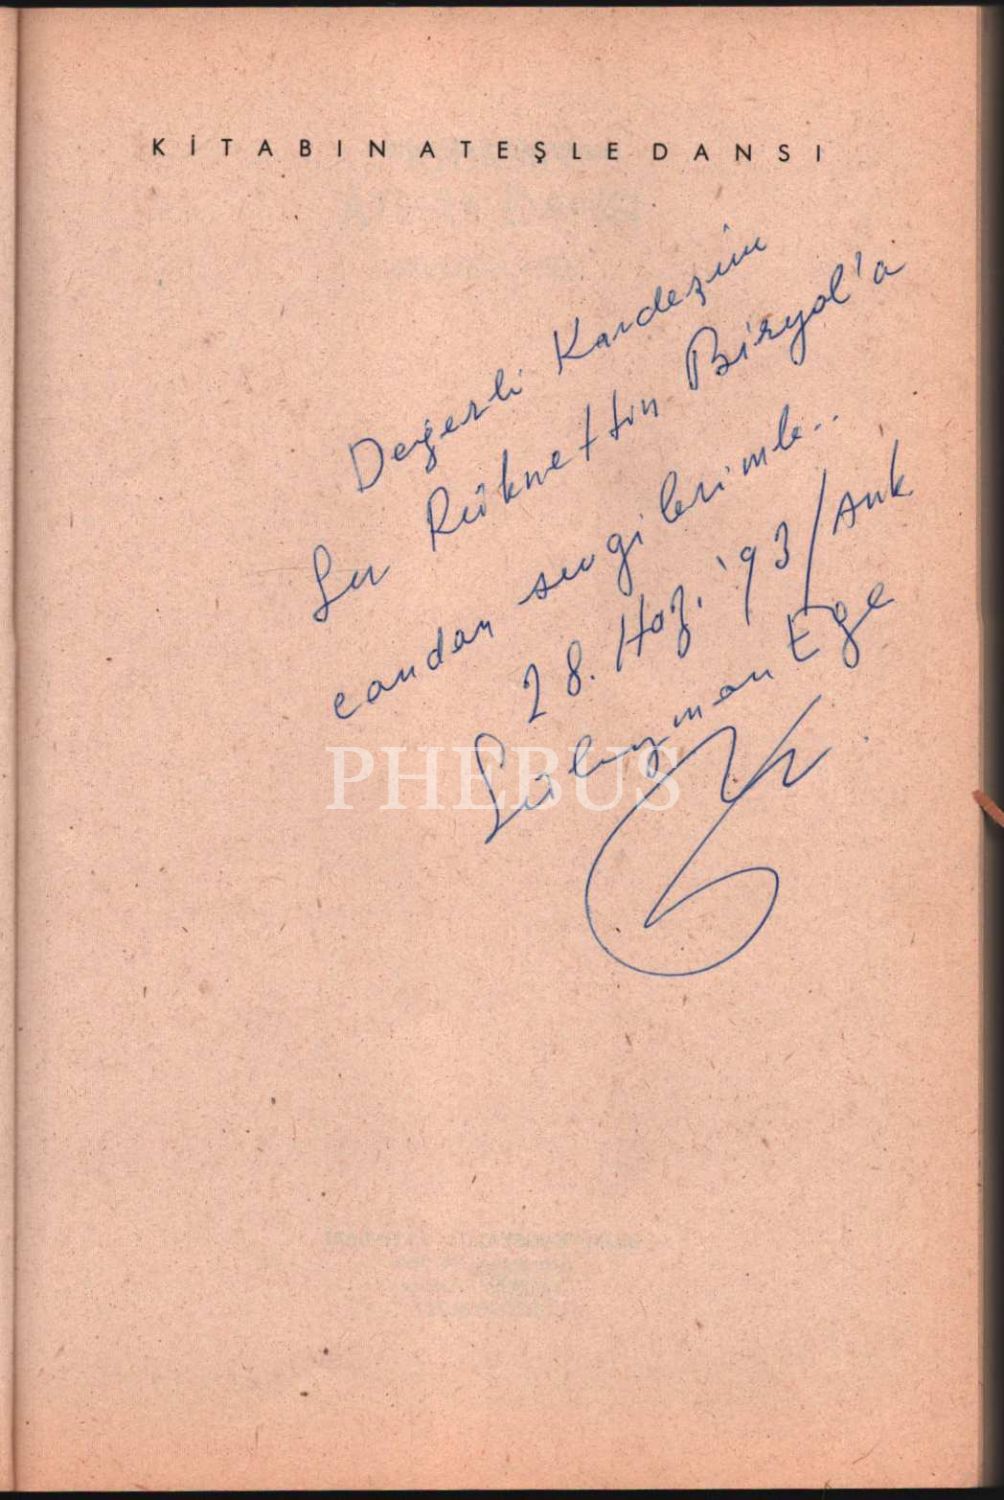 KİTABIN ATEŞLE DANSI
Değerli Kardeşim
Sn Rüknettin Biryol'a
candan sevgilerimle..
28. Haz. '93/Ank
Süleyman Ege
PHEBUS